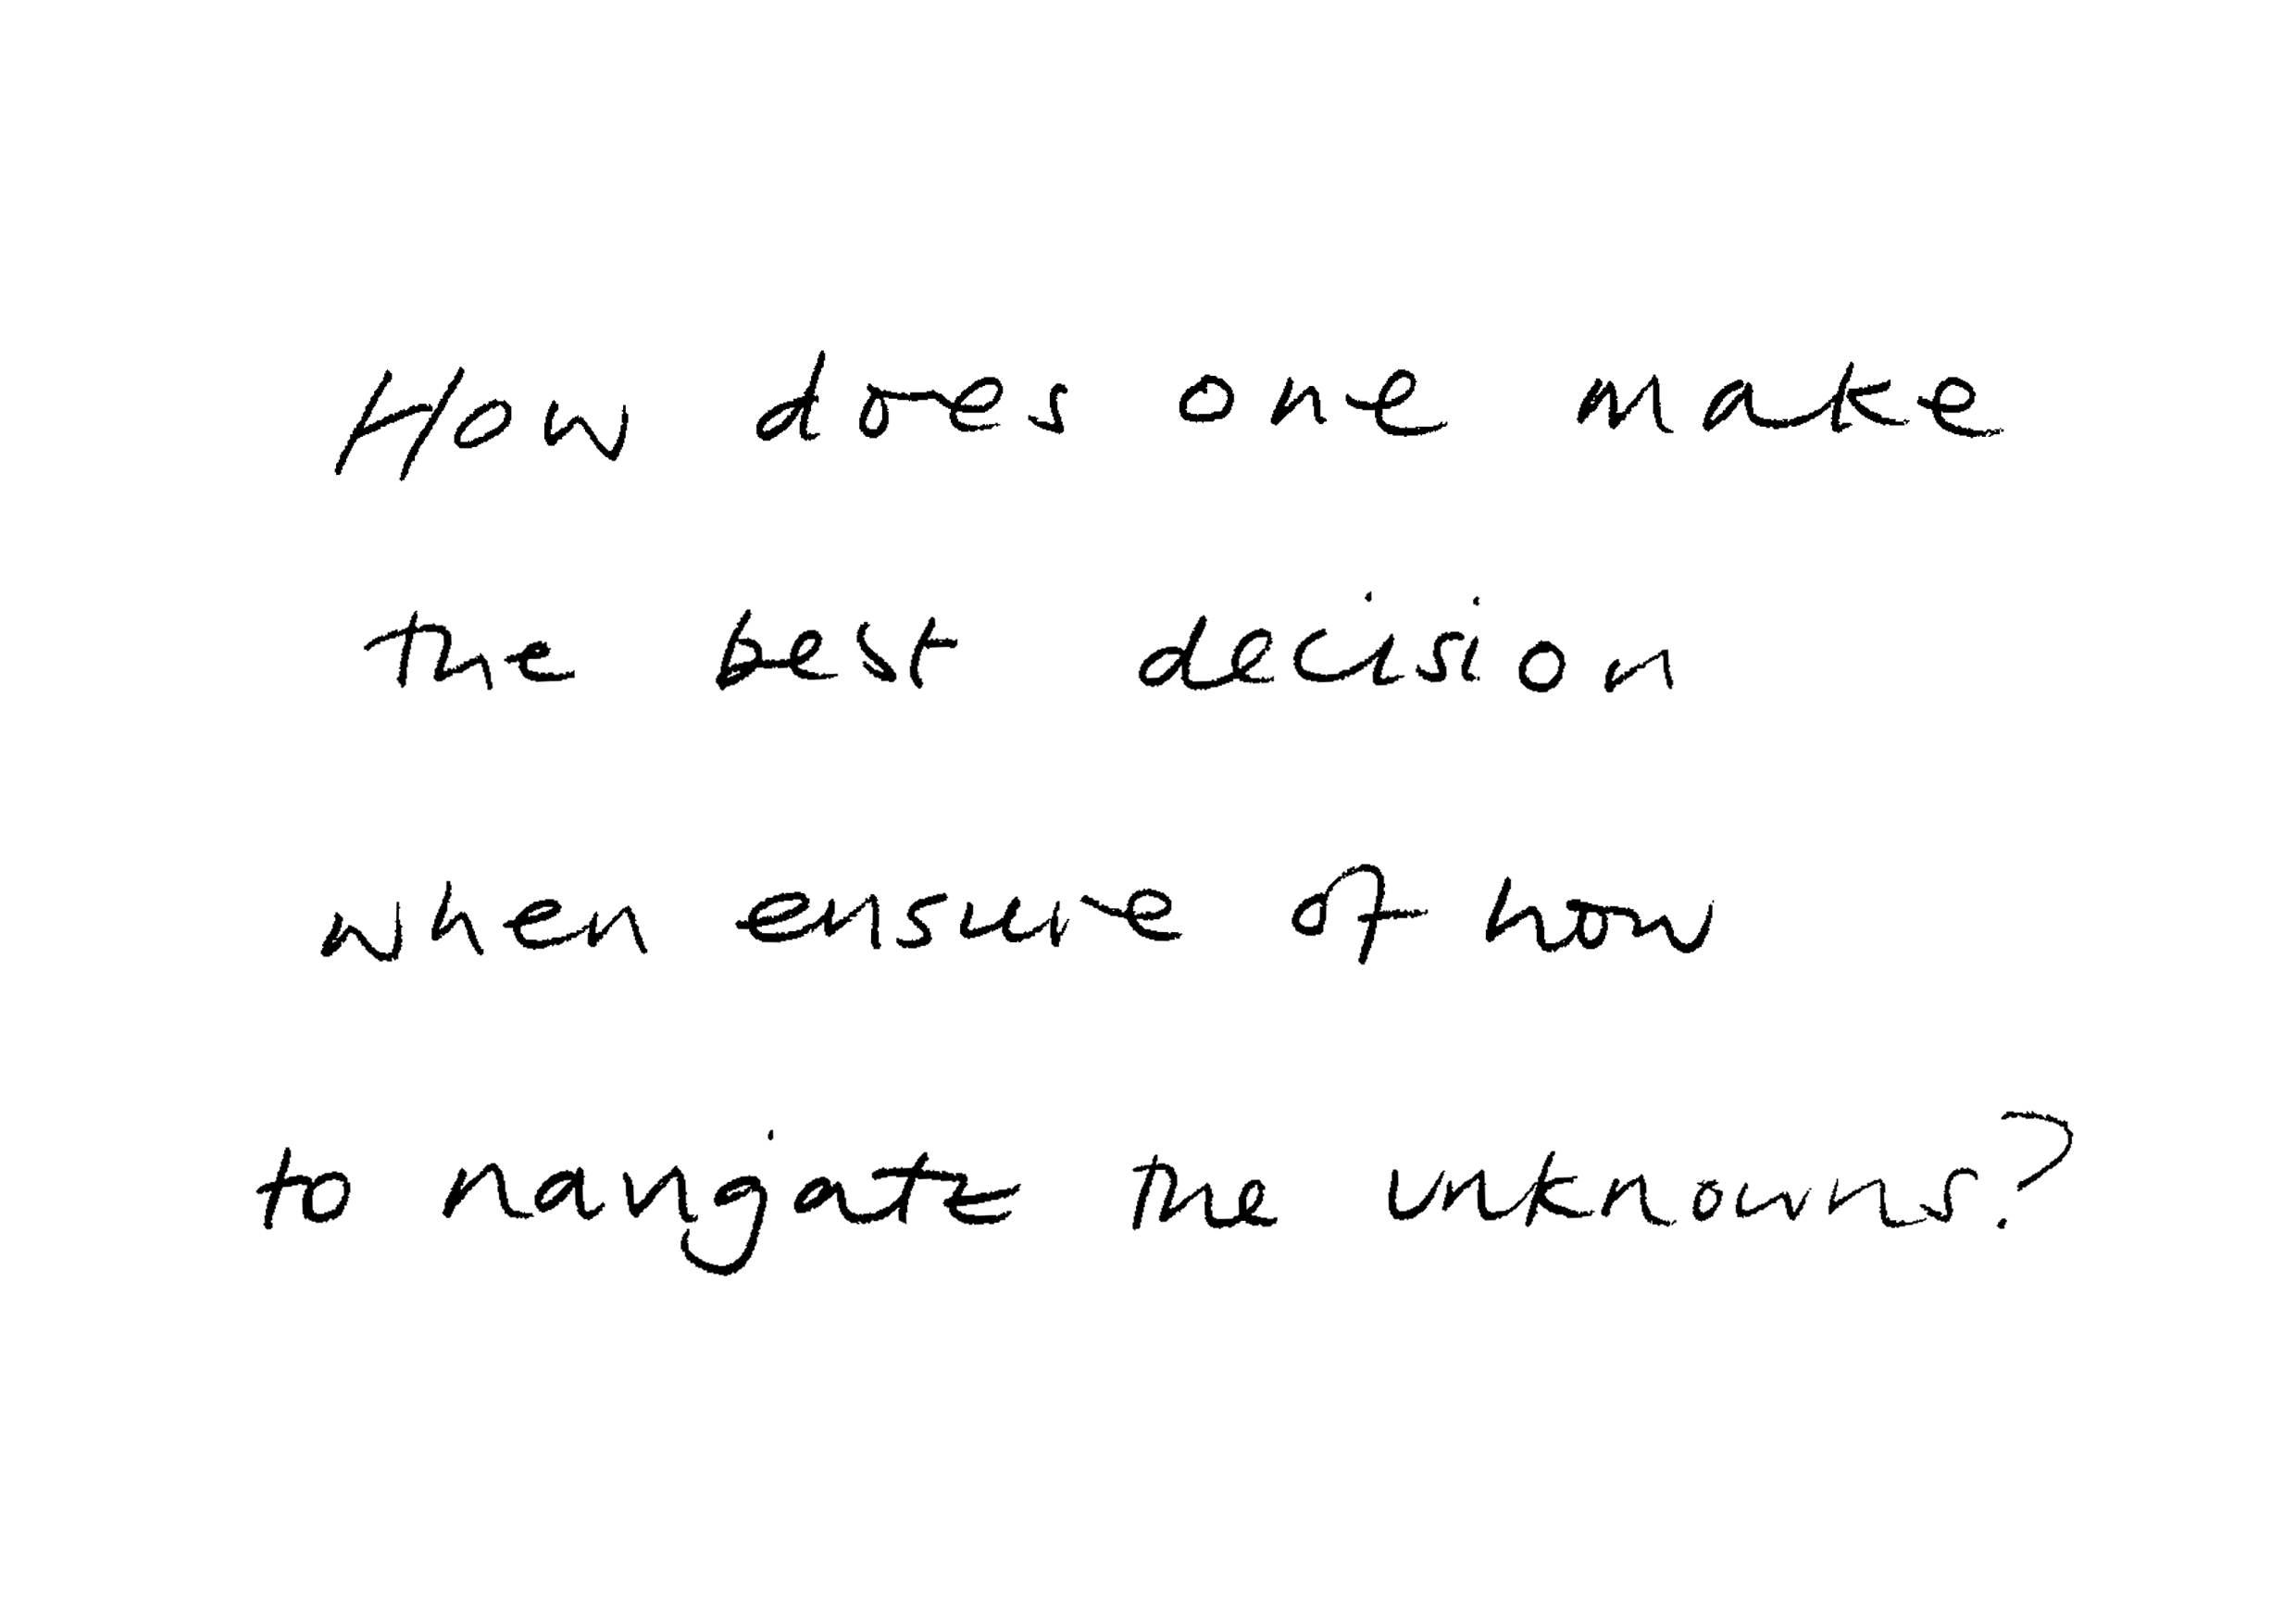 How does one make
the best decision
when ensure of how
to navigate the unknowns?